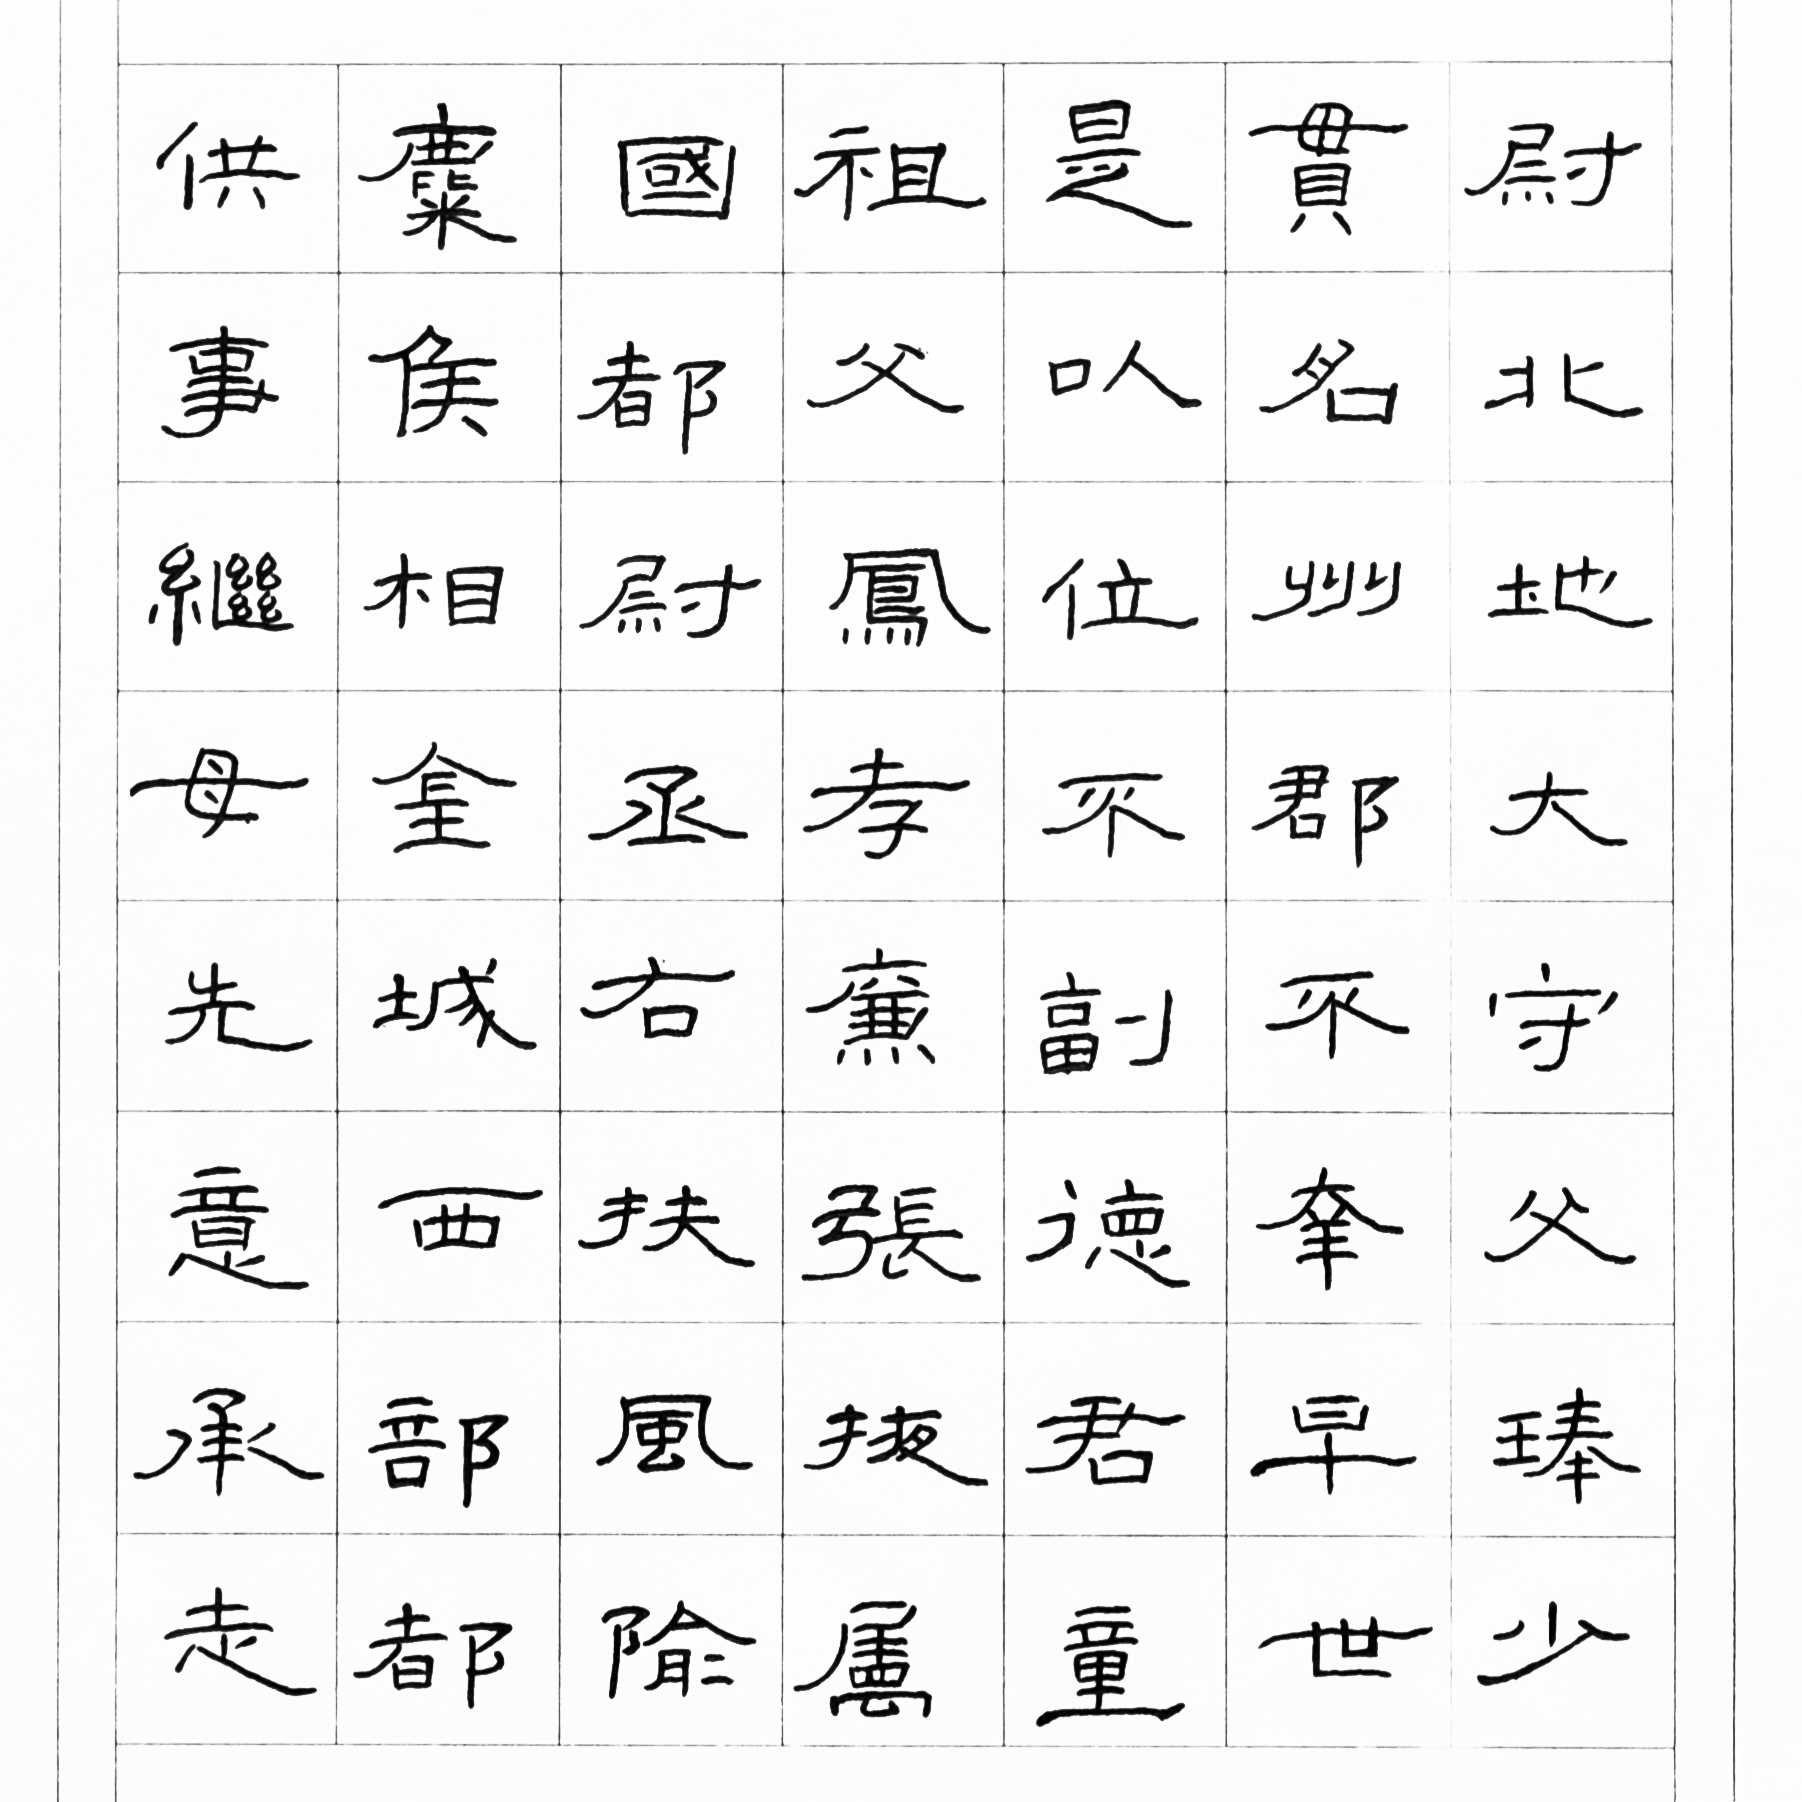 尉北地大守父琫少
貫名州郡不幸早世
是以位不副德君童
祖父鳳孝廉張掖屬
國都尉丞右扶風隃
麋侯相金城西部都
供事繼母先意承走